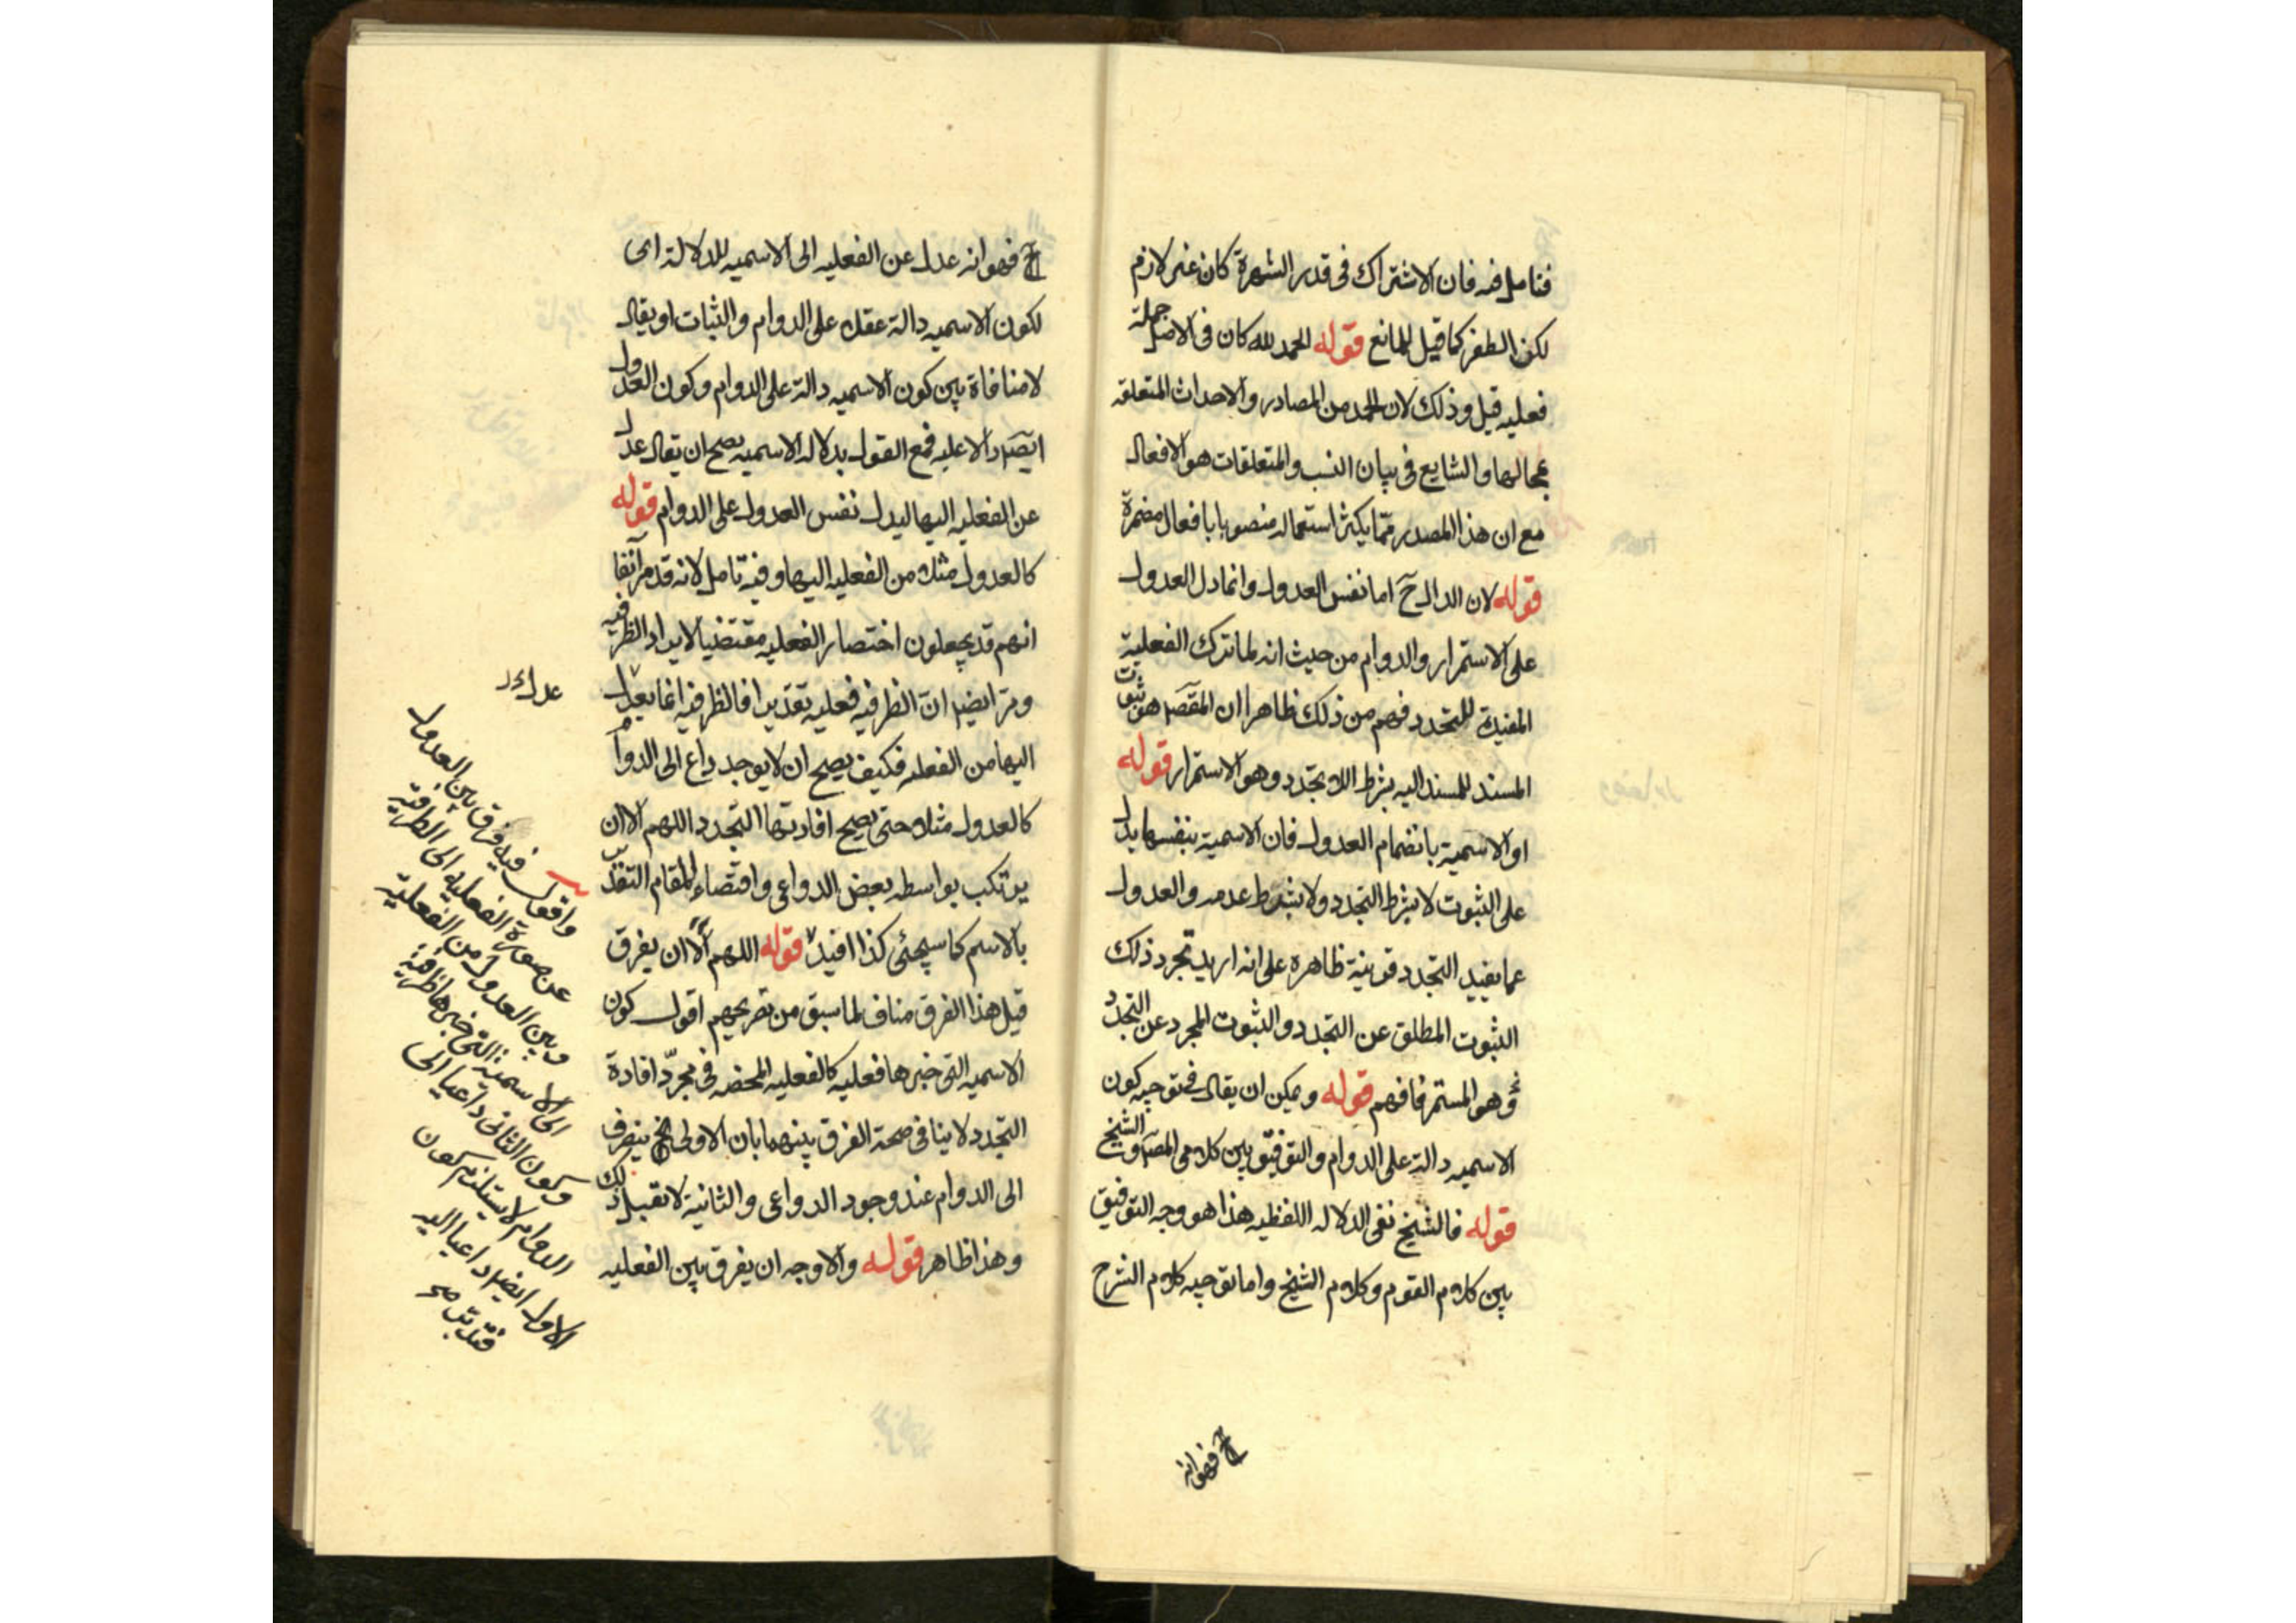 فتامل فيه فان الاشتراك فى قدر الشهرة كان غير لازم
لكن الظفر كما قيل المانع قوله الحمد لله كان فى الاصل جملة
فعليه قيل وذلك لان الحمد من المصادر والاحداث المتعلقه
بمحالها والشايع فى بيان النسب والمتعلقات هو الافعال
مع ان هذا المصدر مما يكثر استعماله منصوبا بافعال مضمرة
قوله لان الدال ح اما نفس العدول وانما دل العدول
على الاستمرار والدوام من حيث انه لما ترك الفعلية
المفيدة للتجدد فهم من ذلك ظاهرا ان المقصَ هو ثبوت
المسند للمسند اليه بشرط اللا تجدد وهو الاستمرار قوله
او الاسمية بانضمام العدول فان الاسمية بنفسها يدل
على الثبوت لا بشرط التجدد ولا بشرط عدمه والعدول
عما يفيد التجدد قرينة ظاهره على انه اريد تجرد ذلك
الثبوت المطلق عن التجدد والثبوت المجرد عن التجدد
وهو المستمر فافهم قوله ويمكن ان يقال فى توجيه كون
الاسميه دالة على الدوام والتوفيق بين كلامى المصَ والشيخ
قوله فالشيخ نفى الدلاله اللفظيه هذا هو وجه التوفيق
بين كلام القوم وكلام الشيخ واما توجيه كلام الشرح
فهو انه
فهو انه عدل عن الفعليه الى الاسميه للدلالة اى
لكون الاسميه دالة عقلا على الدوام والثبات او يقال
لا منافاة بين كون الاسميه دالة على الدوام وكون العدول
ايضَ دالا عليه فمع القول بدلاله الاسميه يصح ان يقال عدل
عن الفعليه اليها ليدل نفس العدول على الدوام قوله
كالعدول مثلا من الفعليه اليها وفيه تامل لانه قد مر آنفا
انهم قد يجعلون اختصار الفعليه مقتضيا لايراد الظرفيه
ومر ايضا ان الظرفيه فعليه تقديرا فالظرفيه انما يعدل
اليها من الفعليه فكيف يصح ان لا يوجد داع الى الدوام
كالعدول مثلا حتى يصح افادتها التجدد اللهم الا ان
يرتكب بواسطه بعض الدواعى واقتضاء المقام التقدير
بالاسم كما سيجئى كذا افيد قوله اللهم الا ان يفرق
قيل هذا الفرق مناف لما سبق من تصريحهم اقول كون
الاسميه التى خبرها فعليه كالفعليه المحضه فى مجرد افادة
التجدد لا ينافى صحة الفرق بينهما بان الاولى ينصرف
الى الدوام عند وجود الدواعى والثانية لا تقبل ذلك
وهذا ظاهر قوله والاوجه ان يفرق بين الفعليه
واقول فيه فرق بين العدول
عن صورة الفعليه الى الظرفية
وبين العدول من الفعلية
الى الاسمية التى خبرها ظرفية
وكون الثانى داعيا الى
الدوام لا يستلزم كون
الاول ايضا داعيا اليه
فتدبر صح